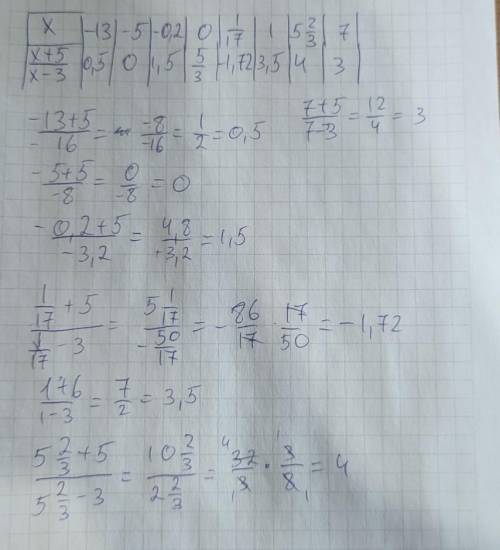 x | -13 | -5 | -0,2 | 0 | 1/17 | 1 | 5 2/3 | 7
x+5/x-3 | 0,5 | 0 | 1,5 | 5/3 | -1,72 | 3,5 | 4 | 3
-13+5/-16 = -8/-16 = 1/2 = 0,5
7+5/7-3 = 12/4 = 3
-5+5/-8 = 0/-8 = 0
-0,2+5/-3,2 = 4,8/+3,2 = 1,5
1/17 + 5 / 1/17 - 3 = 5 1/17 / -50/17 = -86/17 · 17/50 = -1,72
1+6/1-3 = 7/2 = 3,5
5 2/3 + 5 / 5 2/3 - 3 = 10 2/3 / 2 2/3 = 32/3 · 3/8 = 4